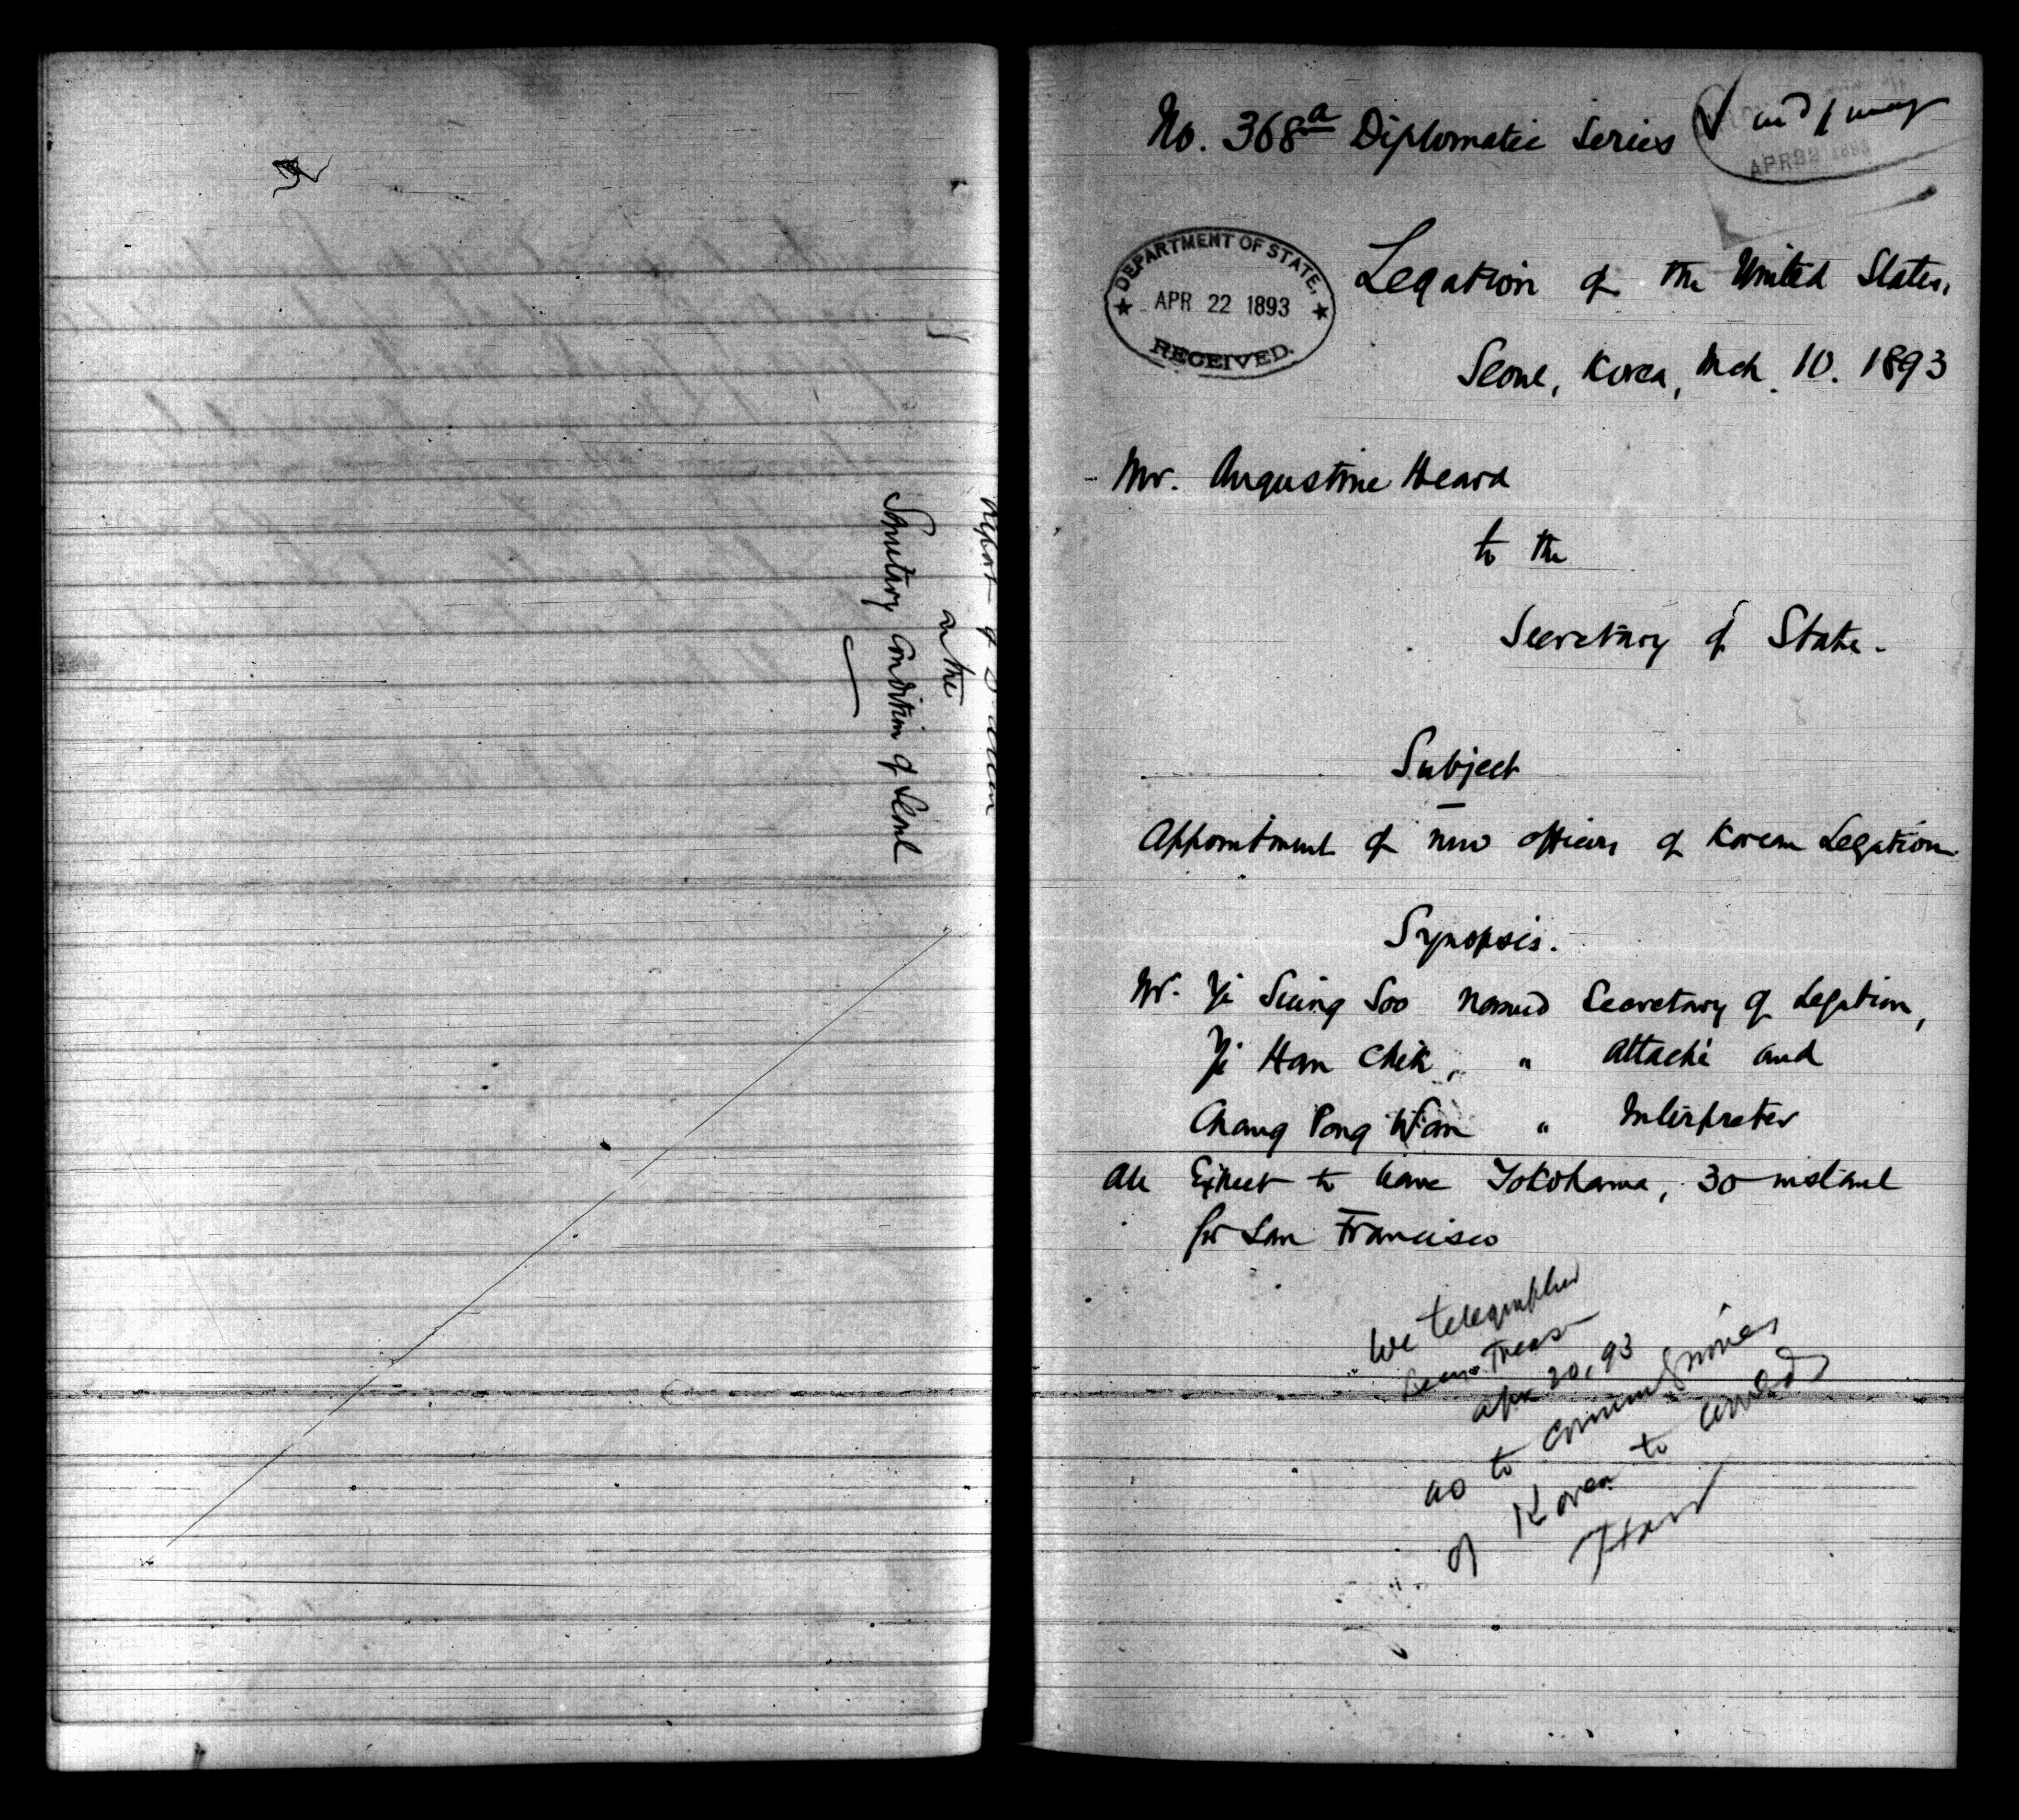 Report of
on the
Sanitary Condition of Seoul
No. 368a Diplomatic Series
APR 22 1893
DEPARTMENT OF STATE,
APR 22 1893
RECEIVED.
Legation of the United States,
Seoul, Korea, Mch. 10. 1893
Mr. Augustine Heard
to the
Secretary of State.
Subject
Appointment of new officers of Korean Legation.
Synopsis.
Mr. Yi Seung Soo named Secretary of Legation,
Yi Han Chik, " Attaché and
Chang Pong Wan " Interpreter
All Expect to leave Yokohama, 30 instant
for San Francisco
We telegraphed
Treas
Apr 20, 93
as to commissioners
of Korea to World's
Fair